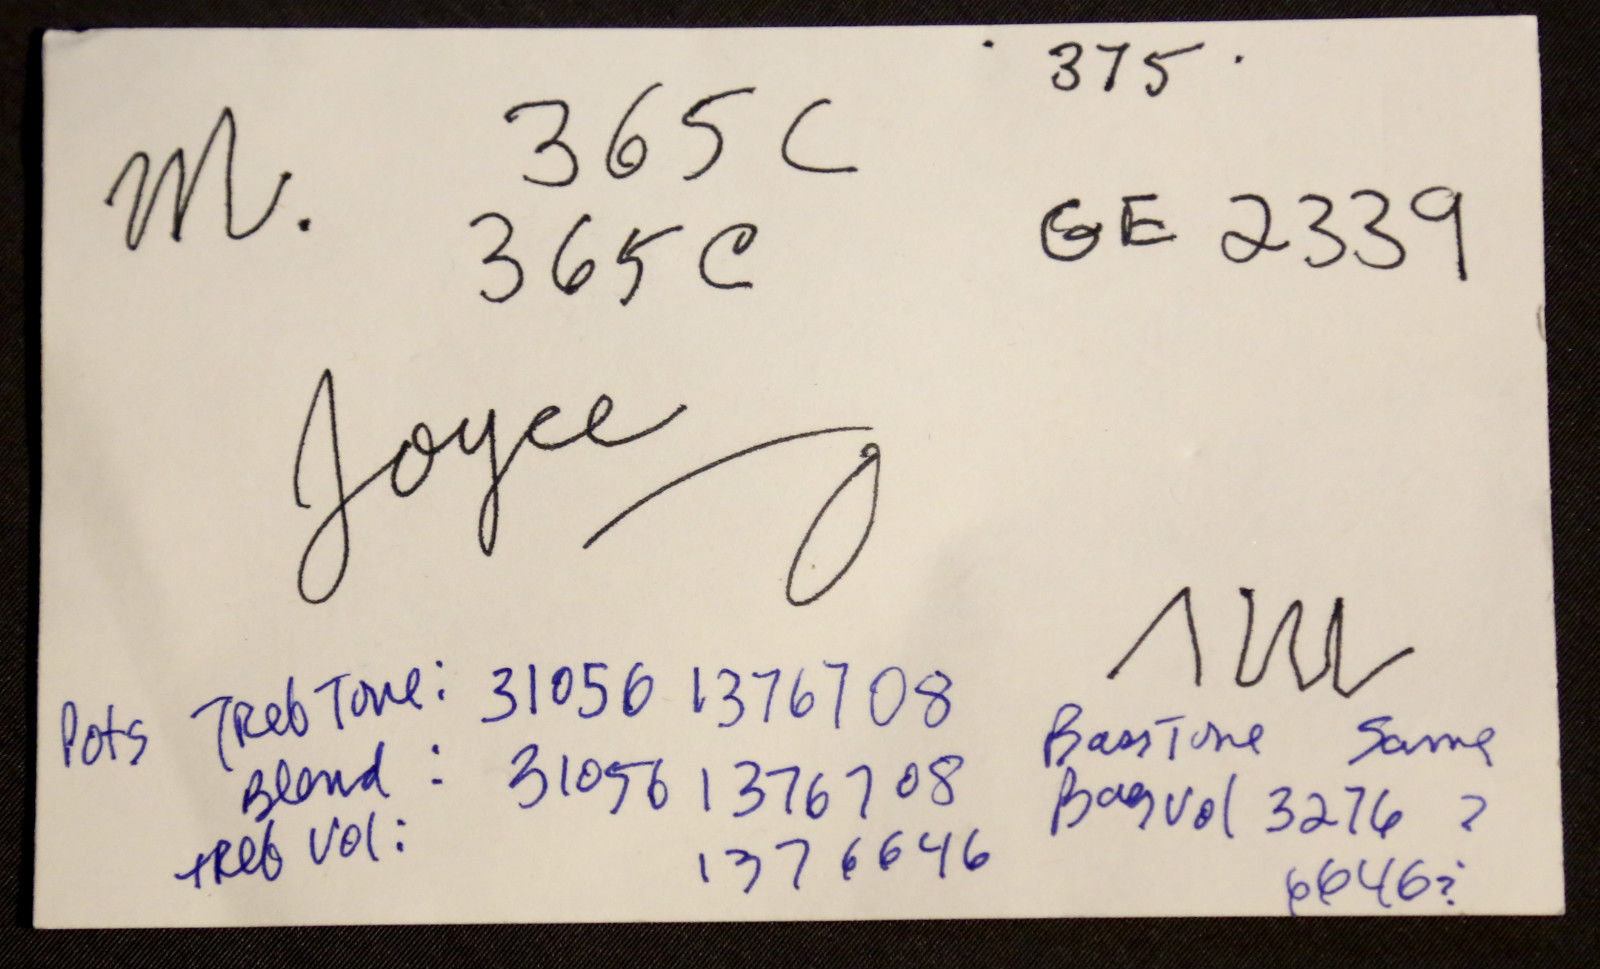 375.
M. 365C
365C
GE 2339
Joyce
Pots Treb Tone: 31056 1376708
Blend : 31056 1376708
treb Vol: 1376646
BassTone Same
BassVol 3276 ?
6646?